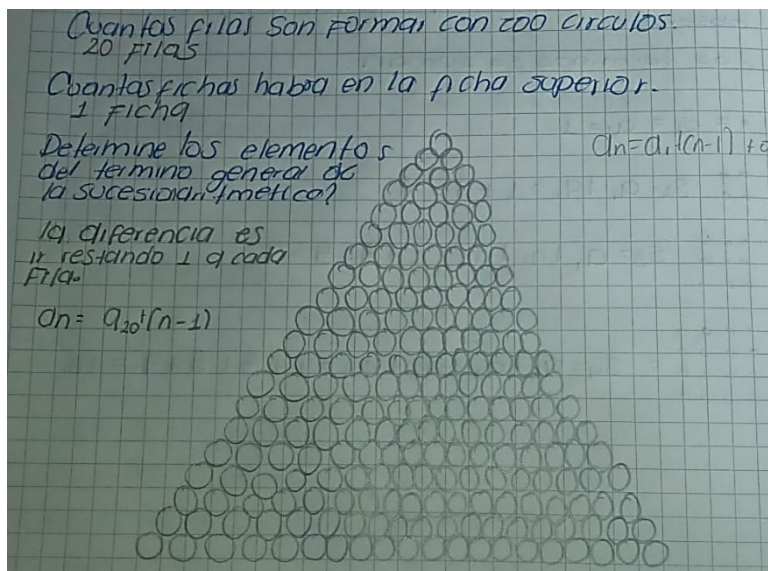 Cuantas filas son formar con 200 circulos.
20 Filas
Cuantas fichas habra en la ficha superior.
1 Ficha
Determine los elementos
del termino general de
la sucesion aritmetica?
an=a1+(n-1)+d
la diferencia es
ir restando 1 a cada
Fila.
an= a20+(n-1)